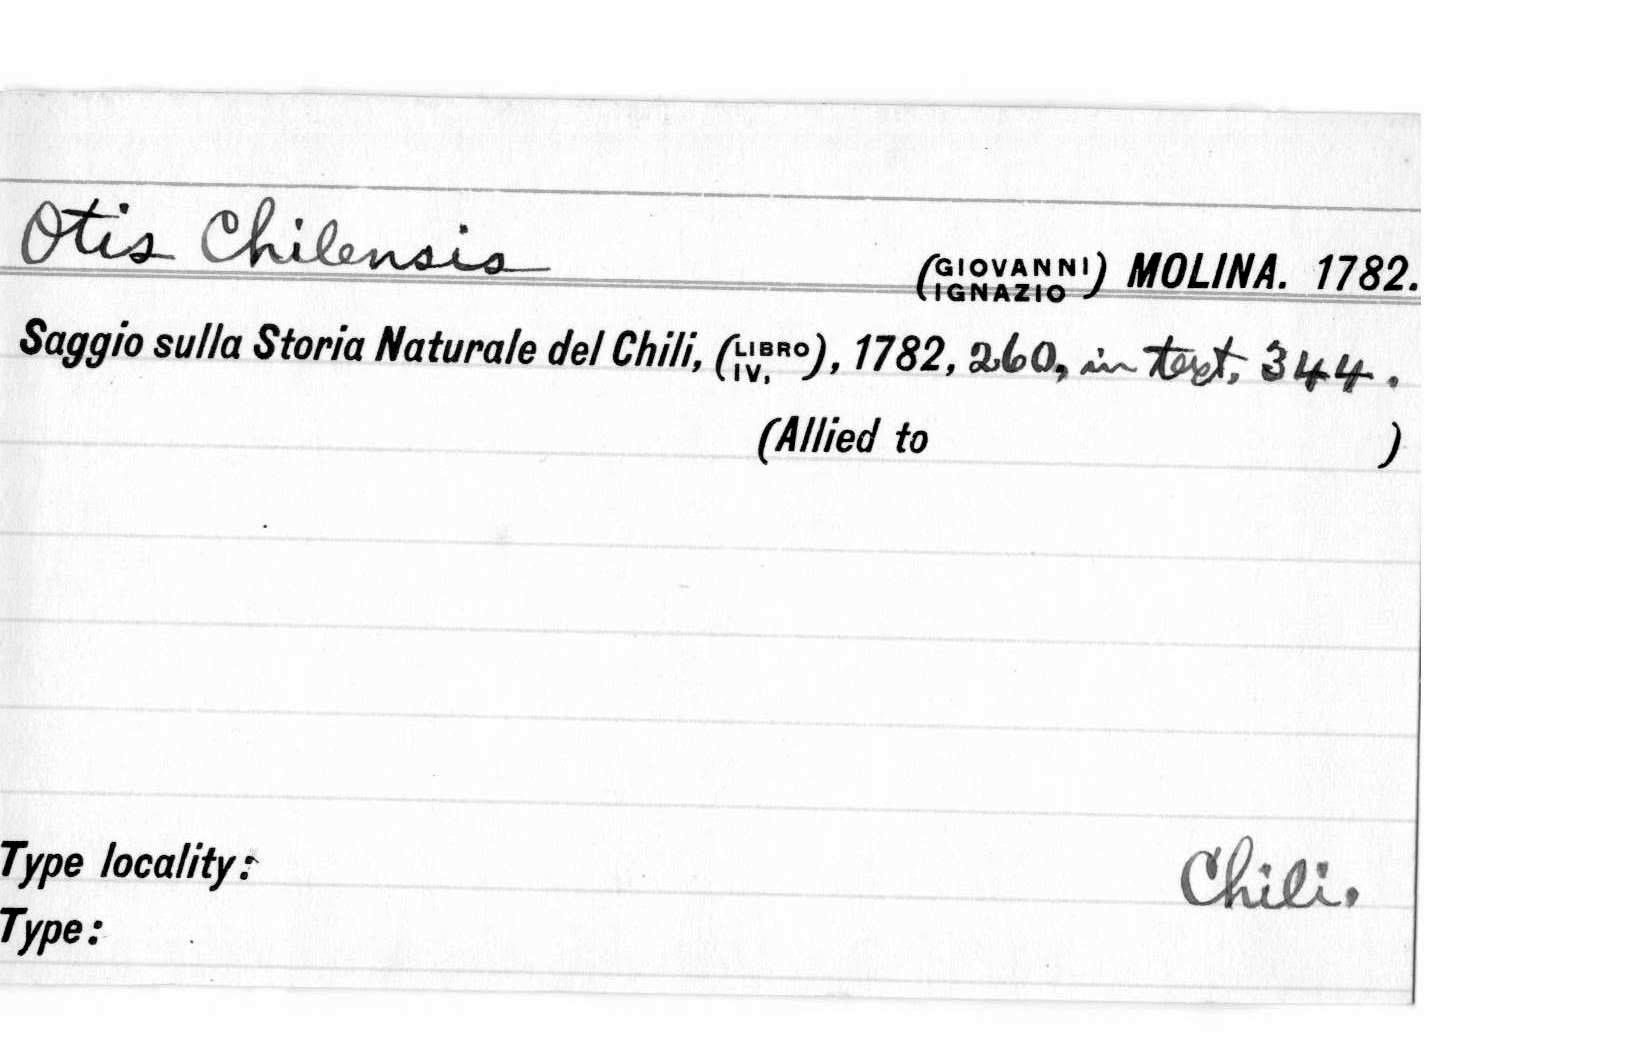 Otis Chilensis (GIOVANNI IGNAZIO) MOLINA. 1782.
Saggio sulla Storia Naturale del Chili, (LIBRO IV,), 1782, 260, in text, 344.
(Allied to )
Type locality: Chili.
Type: